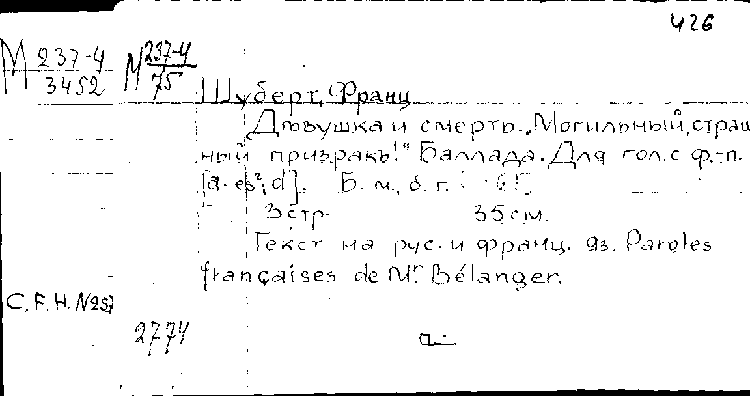 426
М 237-4 М 237-4
3452 75
Шуберт, Франц
Дѣвушка и смерть. „Могильный, страш
ный призракъ!" Баллада. Для гол. с ф.-п.
[a - es²; d]. Б. м., б. г.
3 стр. 35 см.
Текст на рус. и франц. яз. Paroles
françaises de Mr. Bélanger.
C. F. H. N257
2774